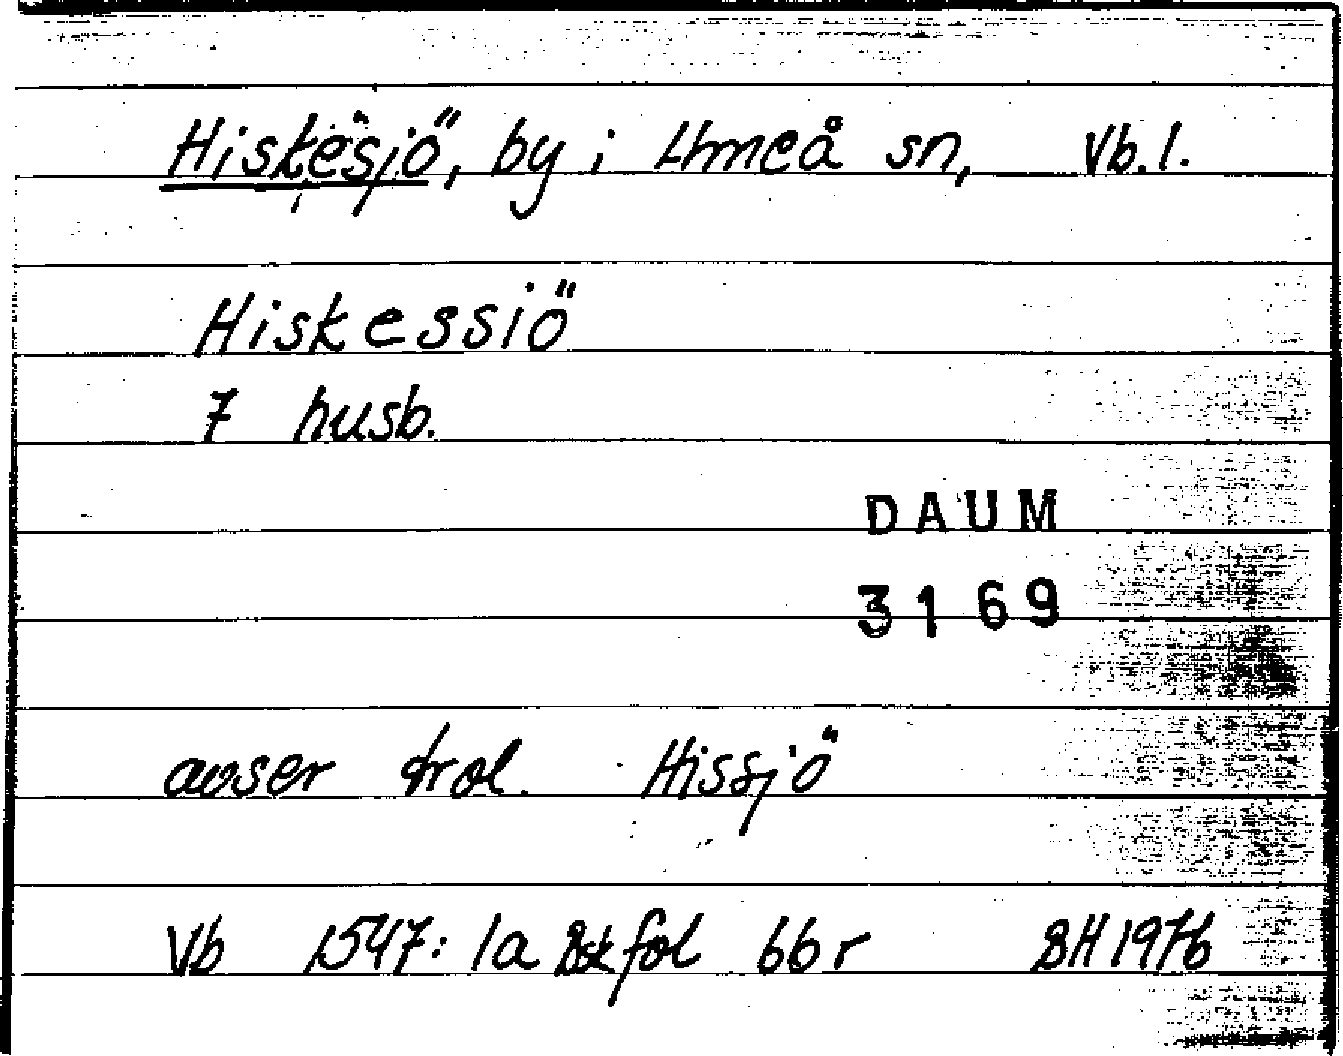 Hiskesjö, by i Umeå sn, Vb.l.
Hiskessiö
7 husb.
DAUM
3169
avser trol. Hissjö
Vb 1547: 1a fol 66r BH 1976